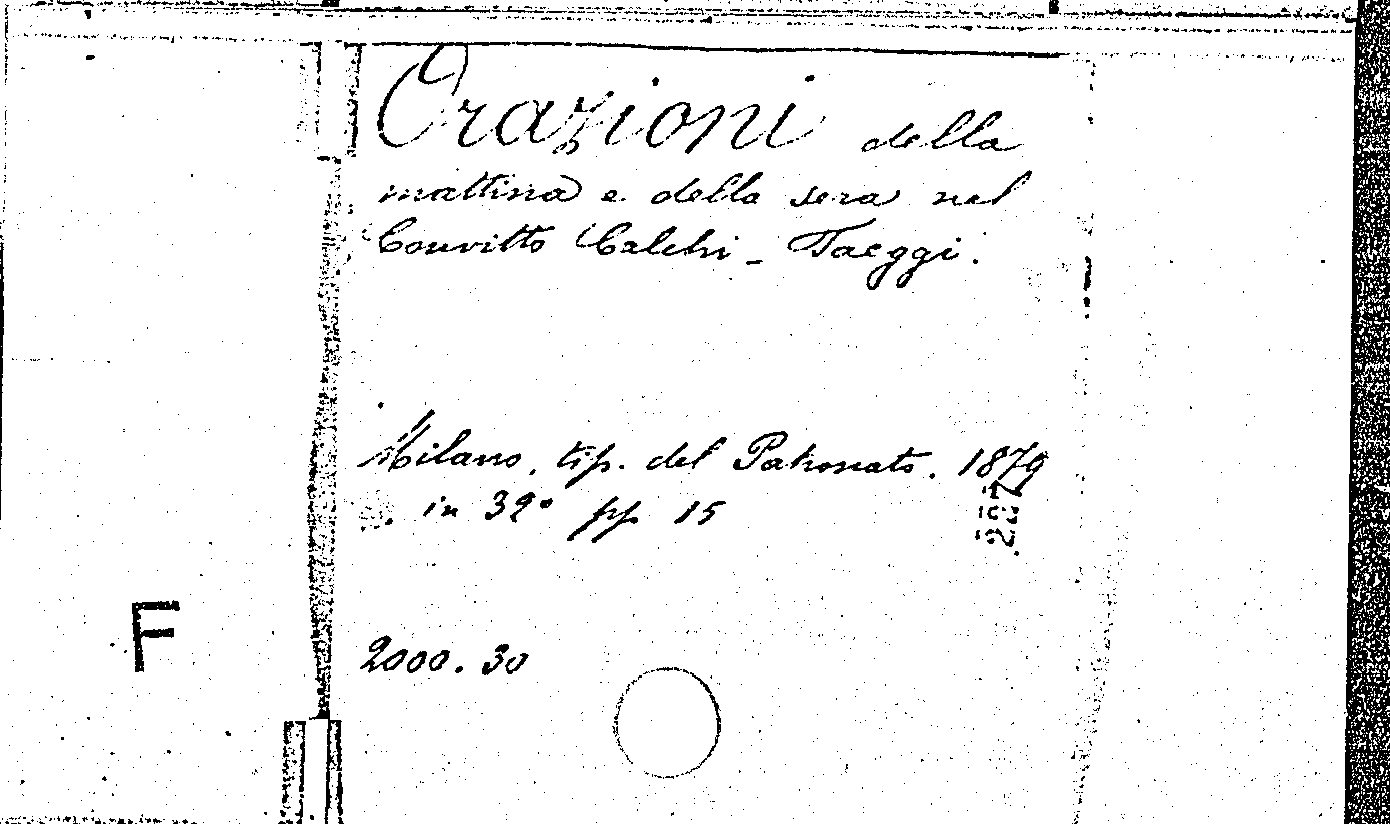 Orazioni della
mattina e della sera nel
Convitto Calchi - Taeggi.
Milano, tip. del Patronato. 1879
in 32° pp 15
227
F
2000. 30